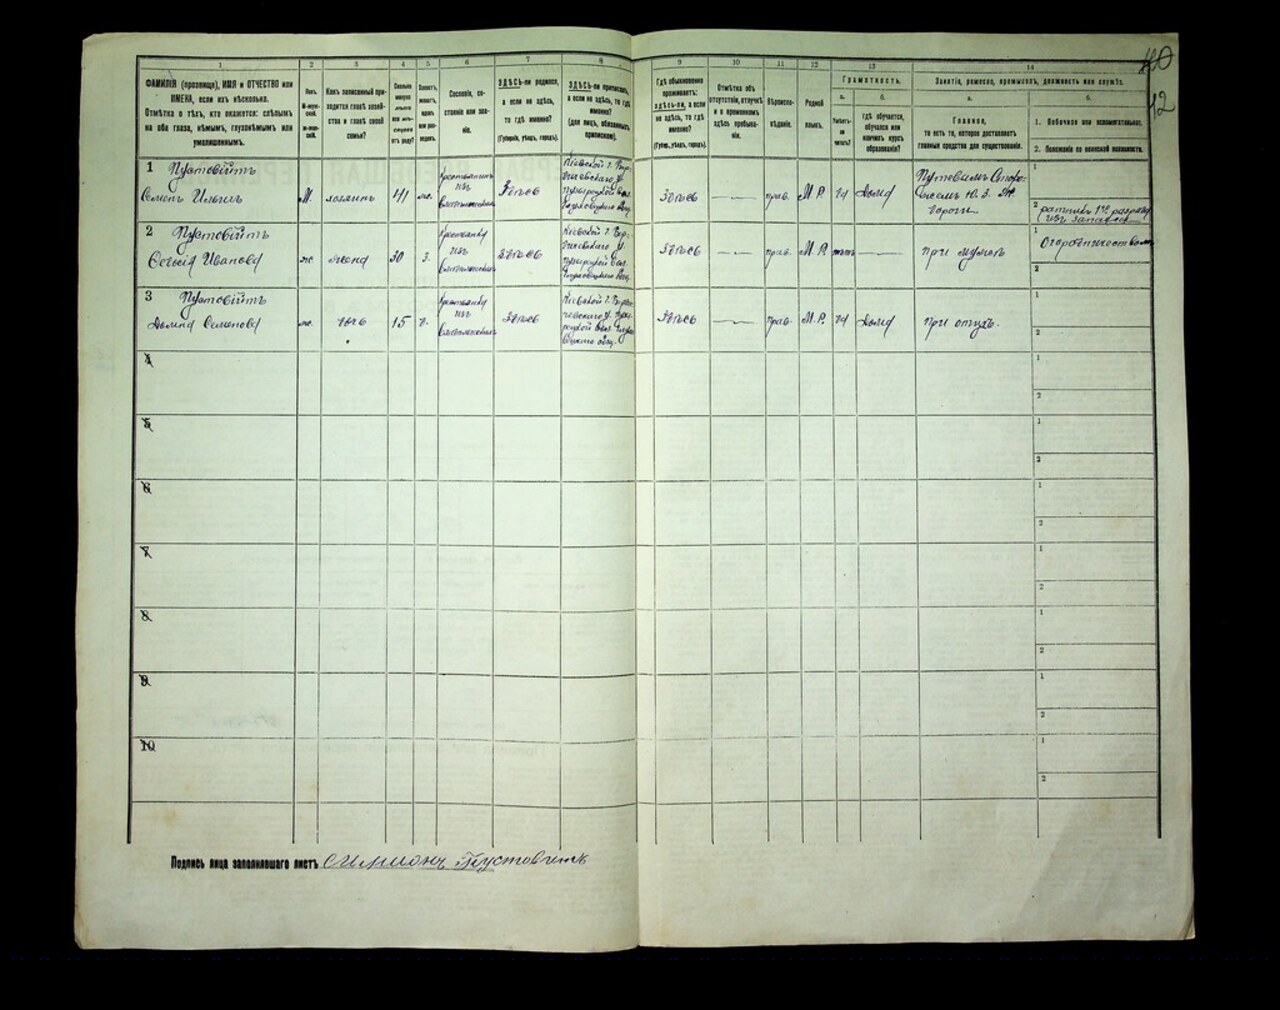 40
42
1
ФАМИЛІЯ (прозвище), ИМЯ и ОТЧЕСТВО или
ИМЕНА, если ихъ нѣсколько.
Отмѣтка о тѣхъ, кто окажется: слѣпымъ
на оба глаза, нѣмымъ, глухонѣмымъ или
умалишеннымъ.
2
Полъ.
М-муж-
ской.
ж-жен-
скій.
3
Какъ записанный при-
ходится главѣ хозяй-
ства и главѣ своей
семьи?
4
Сколько
минуло
лѣтъ
или мѣ-
сяцевъ
отъ роду?
5
Холостъ,
женатъ,
вдовъ
или раз-
веденъ.
6
Сословіе, со-
стояніе или зва-
ніе.
7
ЗДѢСЬ-ли родился,
а если не здѣсь,
то гдѣ именно?
(Губернія, уѣздъ, городъ).
8
ЗДѢСЬ-ли приписанъ,
а если не здѣсь, то гдѣ
именно?
(для лицъ, обязанныхъ
припискою).
9
Гдѣ обыкновенно
проживаетъ:
здѣсь-ли, а если
не здѣсь, то гдѣ
именно?
(Губер., уѣздъ, городъ).
10
Отмѣтка объ
отсутствіи, отлучкѣ
и о временномъ
здѣсь пребыва-
ніи.
11
Вѣроиспо-
вѣданіе.
12
Родной
языкъ.
13
Грамотность.
а.
Умѣетъ-
ли
читать?
б.
гдѣ обучается,
обучался или
кончилъ курсъ
образованія?
14
Занятіе, ремесло, промыселъ, должность или служба.
а.
Главное,
то есть то, которое доставляетъ
главныя средства для существованія.
б.
1. Побочное или вспомогательное.
2. Положеніе по воинской повинности.
1
Пустовійтъ
Семенъ Ильинъ
М.
хозяинъ
41
ж.
Здѣсь
Здѣсь
—
прав.
М.Р.
да
дома
1
2
ратникъ 1го разряда
(изъ запаса)
2
Пустовійтъ
Ивановa
ж.
жена
30
з.
Здѣсь
Здѣсь
—
прав.
М.Р.
нѣтъ
—
при мужѣ
1
Огородничествомъ
2
3
Пустовійтъ
Семенова
ж.
дочь
15
д.
Здѣсь
Здѣсь
—
прав.
М.Р.
да
дома
при отцѣ.
1
2
4
1
2
5
1
2
6
1
2
7
1
2
8
1
2
9
1
2
10
1
2
Подпись лица заполнившаго листъ Симионъ Пустовитъ